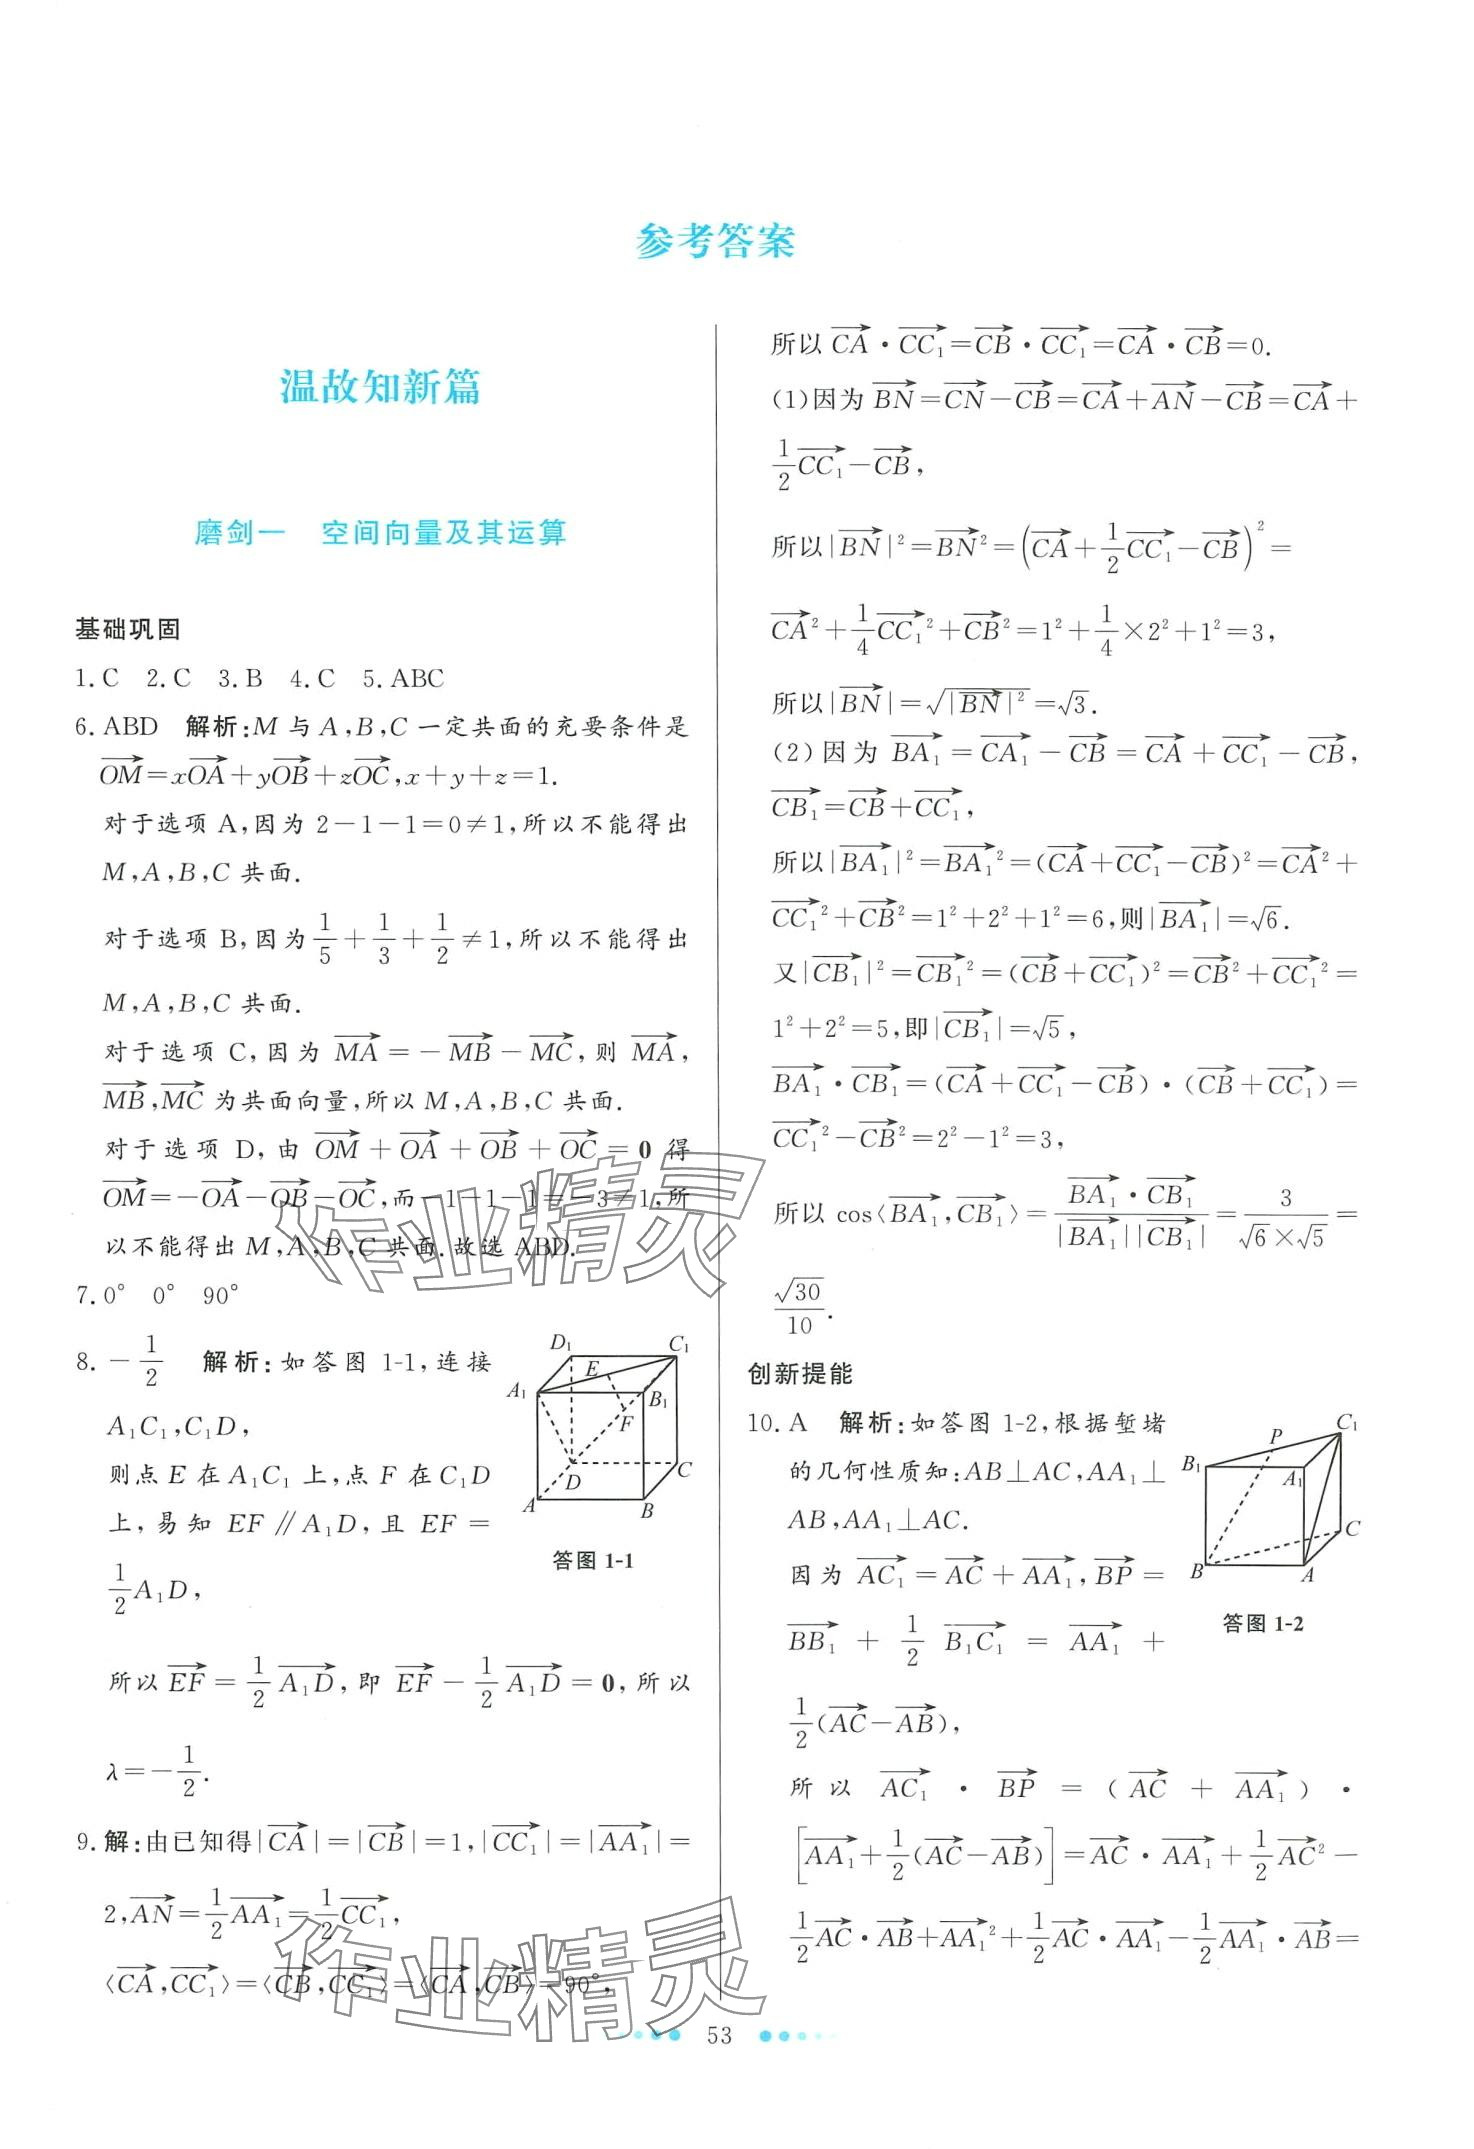 参考答案
温故知新篇
磨剑一　空间向量及其运算
基础巩固
1.C　2.C　3.B　4.C　5.ABC
6.ABD　解析:M与A,B,C一定共面的充要条件是
$\overrightarrow{OM}=x\overrightarrow{OA}+y\overrightarrow{OB}+z\overrightarrow{OC},x+y+z=1.$
对于选项A,因为2-1-1=0≠1,所以不能得出
M,A,B,C共面.
对于选项B,因为$\frac{1}{5}+\frac{1}{3}+\frac{1}{2}\neq1$,所以不能得出
M,A,B,C共面.
对于选项C,因为$\overrightarrow{MA}=-\overrightarrow{MB}-\overrightarrow{MC}$,则$\overrightarrow{MA}$,
$\overrightarrow{MB},\overrightarrow{MC}$为共面向量,所以M,A,B,C共面.
对于选项D,由$\overrightarrow{OM}+\overrightarrow{OA}+\overrightarrow{OB}+\overrightarrow{OC}=\mathbf{0}$得
$\overrightarrow{OM}=-\overrightarrow{OA}-\overrightarrow{OB}-\overrightarrow{OC}$,而-1-1-1=-3≠1,所
以不能得出M,A,B,C共面.故选ABD.
7.0°　0°　90°
8.$-\frac{1}{2}$　解析:如答图1-1,连接
$A_1C_1,C_1D,$
则点E在$A_1C_1$上,点F在$C_1D$
上,易知$EF∥A_1D$,且EF=
$\frac{1}{2}A_1D,$
D₁
C₁
E
A₁
B₁
F
D
C
A
B
答图1-1
所以$\overrightarrow{EF}=\frac{1}{2}\overrightarrow{A_1D}$,即$\overrightarrow{EF}-\frac{1}{2}\overrightarrow{A_1D}=\mathbf{0}$,所以
$\lambda=-\frac{1}{2}.$
9.解:由已知得$|\overrightarrow{CA}|=|\overrightarrow{CB}|=1,|\overrightarrow{CC_1}|=|\overrightarrow{AA_1}|=$
$2,\overrightarrow{AN}=\frac{1}{2}\overrightarrow{AA_1}=\frac{1}{2}\overrightarrow{CC_1},$
$\langle\overrightarrow{CA},\overrightarrow{CC_1}\rangle=\langle\overrightarrow{CB},\overrightarrow{CC_1}\rangle=\langle\overrightarrow{CA},\overrightarrow{CB}\rangle=90°,$
所以$\overrightarrow{CA}\cdot\overrightarrow{CC_1}=\overrightarrow{CB}\cdot\overrightarrow{CC_1}=\overrightarrow{CA}\cdot\overrightarrow{CB}=0.$
(1)因为$\overrightarrow{BN}=\overrightarrow{CN}-\overrightarrow{CB}=\overrightarrow{CA}+\overrightarrow{AN}-\overrightarrow{CB}=\overrightarrow{CA}+$
$\frac{1}{2}\overrightarrow{CC_1}-\overrightarrow{CB},$
所以$|\overrightarrow{BN}|^2=\overrightarrow{BN}^2=\left(\overrightarrow{CA}+\frac{1}{2}\overrightarrow{CC_1}-\overrightarrow{CB}\right)^2=$
$\overrightarrow{CA}^2+\frac{1}{4}\overrightarrow{CC_1}^2+\overrightarrow{CB}^2=1^2+\frac{1}{4}\times2^2+1^2=3,$
所以$|\overrightarrow{BN}|=\sqrt{|\overrightarrow{BN}|^2}=\sqrt{3}.$
(2)因为$\overrightarrow{BA_1}=\overrightarrow{CA_1}-\overrightarrow{CB}=\overrightarrow{CA}+\overrightarrow{CC_1}-\overrightarrow{CB},$
$\overrightarrow{CB_1}=\overrightarrow{CB}+\overrightarrow{CC_1},$
所以$|\overrightarrow{BA_1}|^2=\overrightarrow{BA_1}^2=(\overrightarrow{CA}+\overrightarrow{CC_1}-\overrightarrow{CB})^2=\overrightarrow{CA}^2+$
$\overrightarrow{CC_1}^2+\overrightarrow{CB}^2=1^2+2^2+1^2=6$,则$|\overrightarrow{BA_1}|=\sqrt{6}.$
又$|\overrightarrow{CB_1}|^2=\overrightarrow{CB_1}^2=(\overrightarrow{CB}+\overrightarrow{CC_1})^2=\overrightarrow{CB}^2+\overrightarrow{CC_1}^2=$
$1^2+2^2=5$,即$|\overrightarrow{CB_1}|=\sqrt{5},$
$\overrightarrow{BA_1}\cdot\overrightarrow{CB_1}=(\overrightarrow{CA}+\overrightarrow{CC_1}-\overrightarrow{CB})\cdot(\overrightarrow{CB}+\overrightarrow{CC_1})=$
$\overrightarrow{CC_1}^2-\overrightarrow{CB}^2=2^2-1^2=3,$
所以$\cos\langle\overrightarrow{BA_1},\overrightarrow{CB_1}\rangle=\frac{\overrightarrow{BA_1}\cdot\overrightarrow{CB_1}}{|\overrightarrow{BA_1}||\overrightarrow{CB_1}|}=\frac{3}{\sqrt{6}\times\sqrt{5}}=$
$\frac{\sqrt{30}}{10}.$
创新提能
10.A　解析:如答图1-2,根据堑堵
的几何性质知:AB⊥AC,AA₁⊥
AB,AA₁⊥AC.
因为$\overrightarrow{AC_1}=\overrightarrow{AC}+\overrightarrow{AA_1},\overrightarrow{BP}=$
$\overrightarrow{BB_1}+\frac{1}{2}\overrightarrow{B_1C_1}=\overrightarrow{AA_1}+$
$\frac{1}{2}(\overrightarrow{AC}-\overrightarrow{AB}),$
C₁
P
B₁
A₁
C
B
A
答图1-2
所以$\overrightarrow{AC_1}\cdot\overrightarrow{BP}=(\overrightarrow{AC}+\overrightarrow{AA_1})\cdot$
$\left[\overrightarrow{AA_1}+\frac{1}{2}(\overrightarrow{AC}-\overrightarrow{AB})\right]=\overrightarrow{AC}\cdot\overrightarrow{AA_1}+\frac{1}{2}\overrightarrow{AC}^2-$
$\frac{1}{2}\overrightarrow{AC}\cdot\overrightarrow{AB}+\overrightarrow{AA_1}^2+\frac{1}{2}\overrightarrow{AC}\cdot\overrightarrow{AA_1}-\frac{1}{2}\overrightarrow{AA_1}\cdot\overrightarrow{AB}=$
作业精灵
作业精灵
53